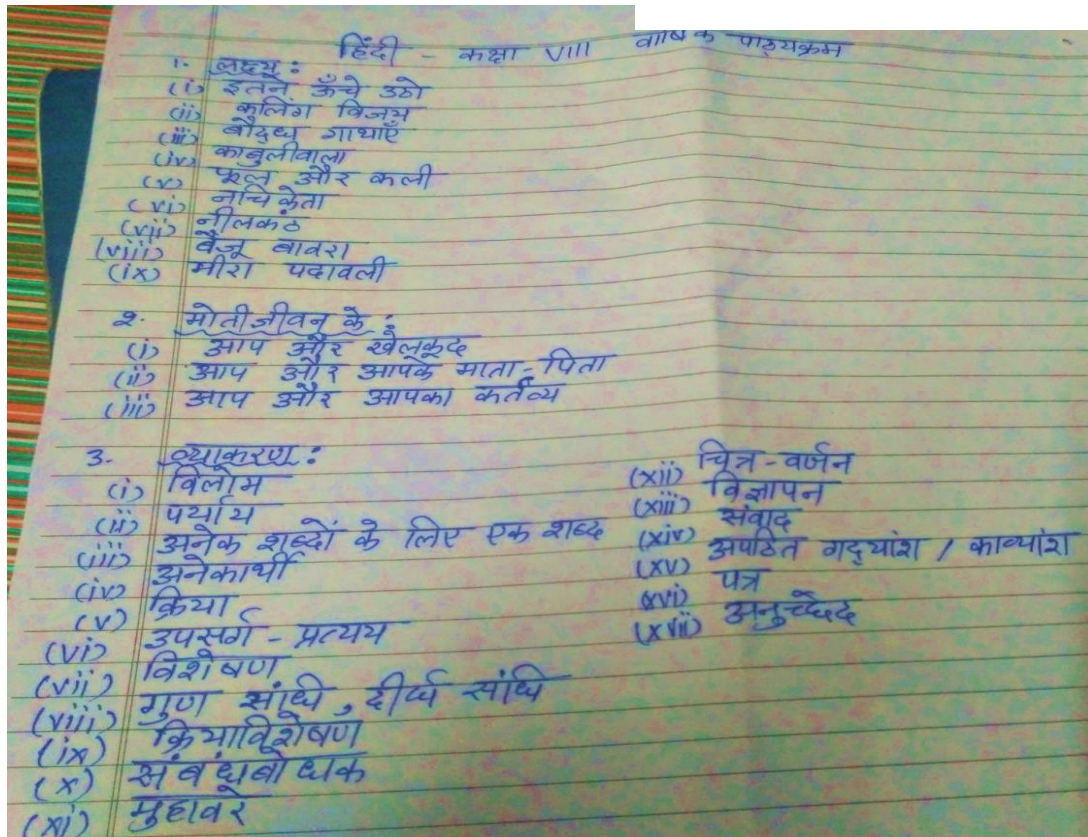 हिंदी - कक्षा VIII वार्षिक पाठ्यक्रम
1. लक्ष्य :
(i) इतने ऊँचे उठो
(ii) कलिंग विजय
(iii) बौद्ध गाथाएँ
(iv) काबुलीवाला
(v) फूल और कली
(vi) नचिकेता
(vii) नीलकंठ
(viii) बैजू बावरा
(ix) मीरा पदावली
2. मोती जीवन के :
(i) आप और खेलकूद
(ii) आप और आपके माता-पिता
(iii) आप और आपका कर्तव्य
3. व्याकरण :
(i) विलोम
(ii) पर्याय
(iii) अनेक शब्दों के लिए एक शब्द
(iv) अनेकार्थी
(v) क्रिया
(vi) उपसर्ग - प्रत्यय
(vii) विशेषण
(viii) गुण संधि, दीर्घ संधि
(ix) क्रियाविशेषण
(x) संबंधबोधक
(xi) मुहावरे
(xii) चित्र - वर्णन
(xiii) विज्ञापन
(xiv) संवाद
(xv) अपठित गद्यांश / काव्यांश
(xvi) पत्र
(xvii) अनुच्छेद